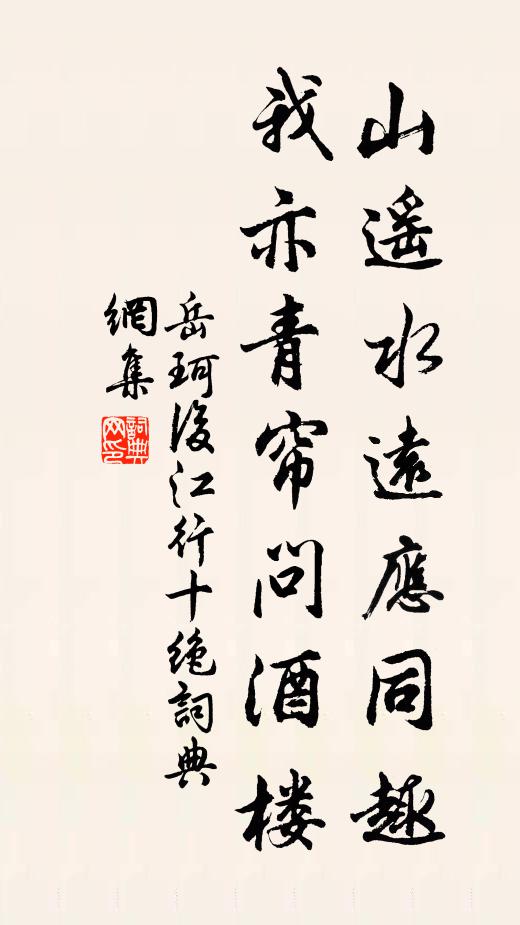 山遥水遠應同趣
我亦青帘問酒楼
岳珂後江行十绝詞典
網集
詞典网印